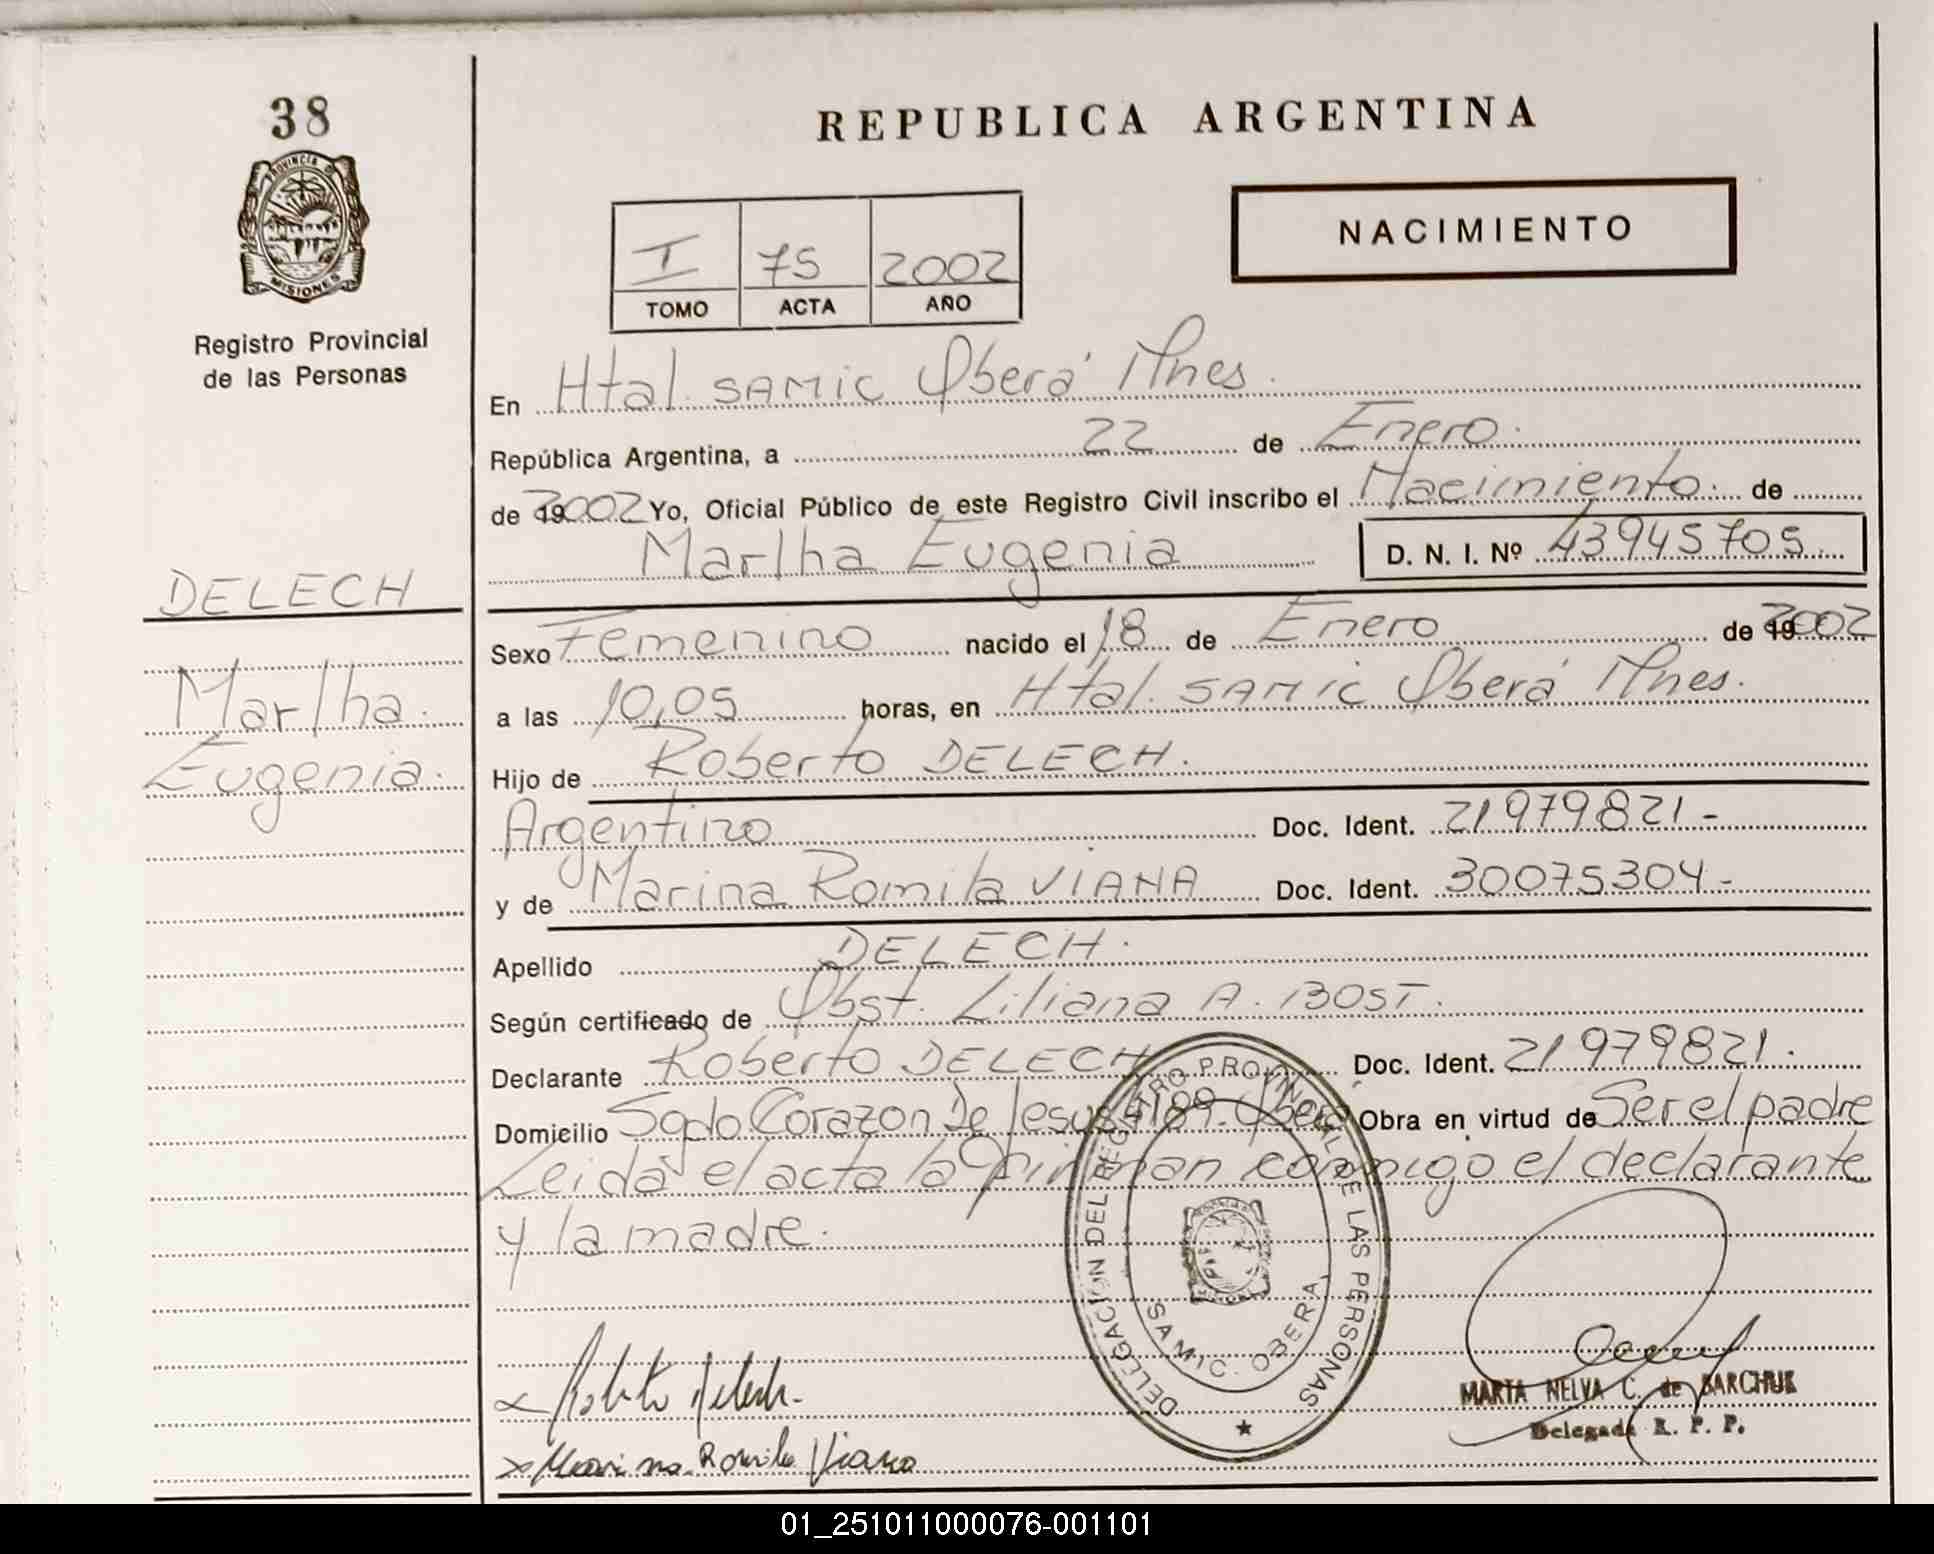 38
PROVINCIA DE
MISIONES
Registro Provincial
de las Personas
DELECH
Martha
Eugenia
REPUBLICA ARGENTINA
NACIMIENTO
I 75 2002
TOMO ACTA AÑO
En Htal. SAMIC Oberá Mnes.
República Argentina, a 22 de Enero.
de 192002 Yo, Oficial Público de este Registro Civil inscribo el Nacimiento. de
Martha Eugenia D. N. I. Nº 43945705
Sexo Femenino nacido el 18 de Enero de 192002
a las 10,05 horas, en Htal. SAMIC Oberá Mnes.
Hijo de Roberto DELECH.
Argentino Doc. Ident. 21979821-
y de Marina Romila VIANA Doc. Ident. 30075304-
Apellido DELECH.
Según certificado de Obst. Liliana A. BOST.
Declarante Roberto DELECH Doc. Ident. 21979821.
Domicilio Sgdo Corazon De Jesus 4189. Oberá Obra en virtud de Ser el padre
Leida el acta la firman conmigo el declarante
y la madre.
DELEGACIÓN DEL REGISTRO PROVINCIAL DE LAS PERSONAS
SAMIC. OBERA
Roberto Delech.
Marina Romila Viana
MARTA NELVA C. de BARCHUK
Delegada R. P. P.
01_251011000076-001101